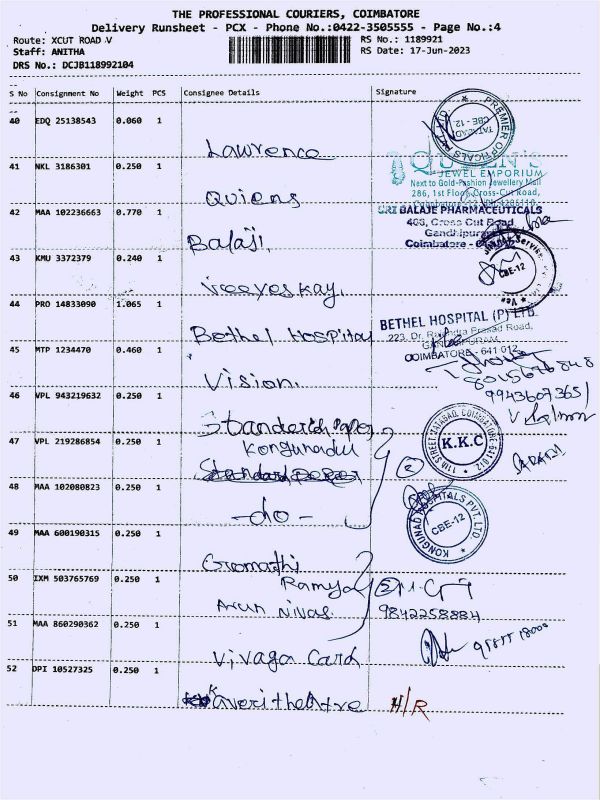 THE PROFESSIONAL COURIERS, COIMBATORE
Delivery Runsheet - PCX - Phone No.:0422-3505555 - Page No.:4
Route: XCUT ROAD V RS No.: 1189921
Staff: ANITHA RS Date: 17-Jun-2023
DRS No.: DCJB118992104
S No Consignment No Weight PCS Consignee Details Signature
40 EDQ 25138543 0.060 1
Lawrence
PREMIER OPTICALS PVT. LTD
TATABAD
CBE - 12
41 NKL 3186301 0.250 1
Quiens
QUEEN'S
JEWEL EMPORIUM
Next to Gold-Fashion Jewellery Mall
286, 1st Floor, Cross-Cut Road,
42 MAA 102236663 0.770 1
Balaji.
SRI BALAJE PHARMACEUTICALS
408, Cross Cut Road
Gandhipuram
Coimbatore -
43 KMU 3372379 0.240 1
Veeyeskay.
CBE-12
44 PRO 14833090 1.065 1
Bethel Hospital
BETHEL HOSPITAL (P) LTD
223, Dr. Rajendra Prasad Road,
GANDHIPURAM,
COIMBATORE - 641 012
45 MTP 1234470 0.460 1
Vision.
9943607365
46 VPL 943219632 0.250 1
Standerich Paper
47 VPL 219286854 0.250 1
Kongunadu
K.K.C
11th STREET TATABAD, COIMBATORE-641 012
2
48 MAA 102080823 0.250 1
-do-
KONGUNAD HOSPITALS PVT. LTD
CBE-12
49 MAA 600190315 0.250 1
Gromathi
50 IXM 503765769 0.250 1
Ramya
Arun Nivas.
2
9842258884
51 MAA 860290362 0.250 1
Vivaga Card
52 DPI 10527325 0.250 1
Kaveritheatre H/R